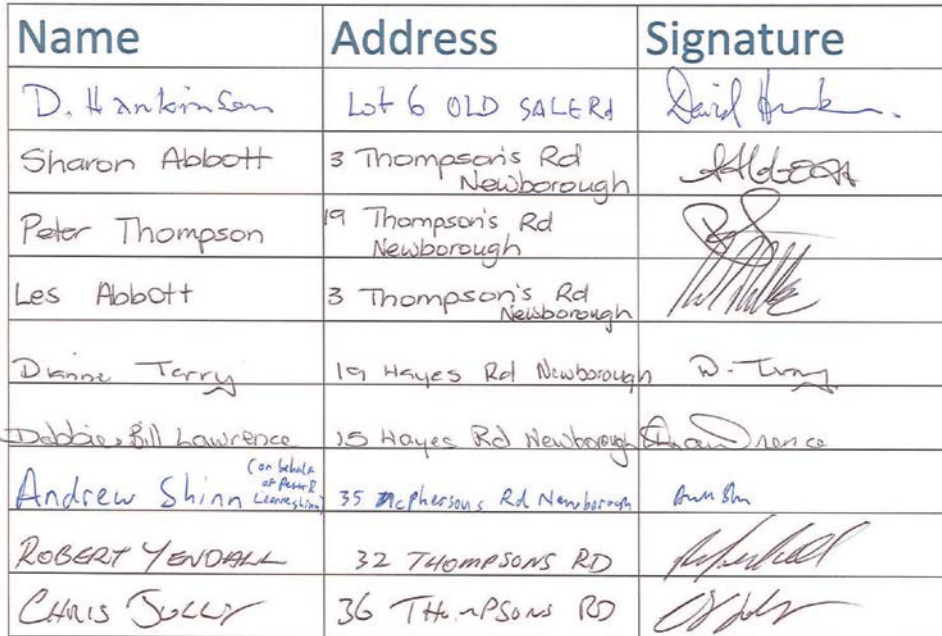 Name Address Signature
D. Hankinson Lot 6 OLD SALE Rd David
Sharon Abbott 3 Thompson's Rd
Newborough
Peter Thompson 19 Thompson's Rd
Newborough
Les Abbott 3 Thompson's Rd
Newborough
Dianne Terry 19 Hayes Rd Newborough D. Terry
Debbie & Bill Lawrence 15 Hayes Rd Newborough
Andrew Shinn (on behalf
of Peter & 
Leanne Shinn) 35 McPhersons Rd Newborough
ROBERT YENDALL 32 THOMPSONS RD
CHRIS JOLLY 36 THOMPSONS RD